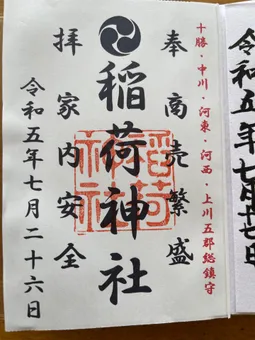 十勝・中川・河東・河西・上川五郡総鎮守
奉商売繁盛
稲荷神社
拝家内安全
令和五年七月二十六日
稲荷
神社
令和五年
七月廿